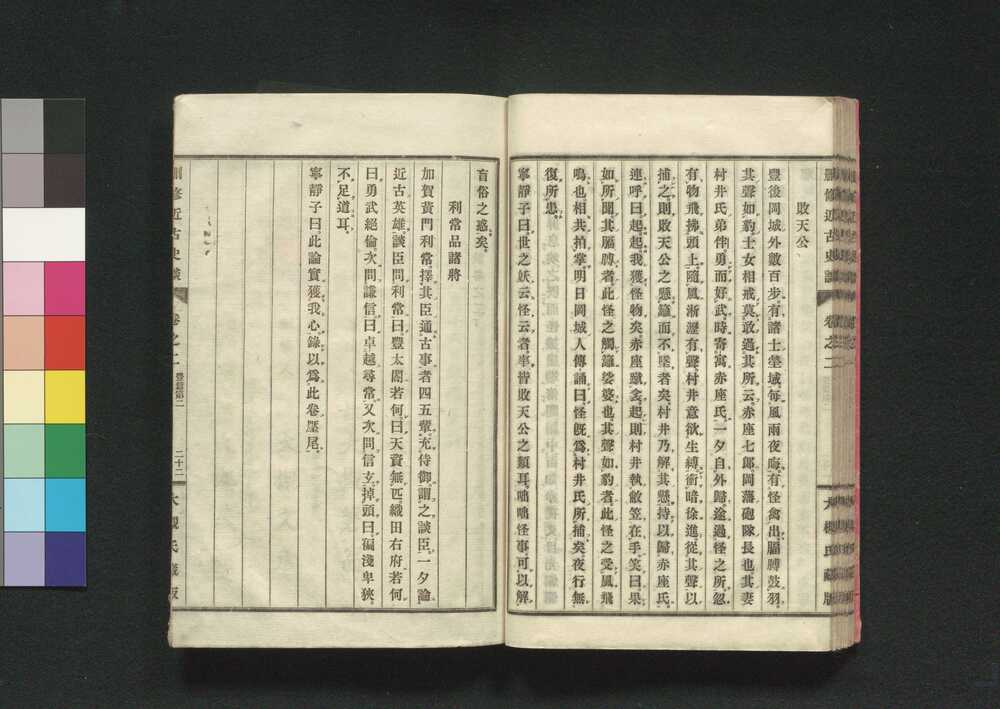 敗天公
豐後岡城外敵百步有諸士塋域每風雨夜晦有怪禽出腷膊鼓羽
其聲如豹士女相戒莫敢過其所云赤座七郎岡藩砲隊長也其妻
村井氏弟伴勇而好武時寄寓赤座氏一夕自外歸途過怪之所忽
有物飛拂頭上隨風淅瀝有聲村井意欲生縛衝暗徐進從其聲以
捕之則敗天公之懸籬而不墜者矣村井乃解其懸持以歸赤座氏
連呼曰起起我獲怪物矣赤座蹴衾起則村井執敝笠在手笑曰果
如所聞其腷膊者此怪之觸籬婆娑也其聲如豹者此怪之受風飛
鳴也相共拍掌明日岡城人傳誦曰怪旣爲村井氏所捕矣夜行無
復所患
寧靜子曰世之妖云怪云者率皆敗天公之類耳咄咄怪事可以解
盲俗之惑矣
利常品諸將
加賀黃門利常擇其臣通古事者四五輩充侍御謂之談臣一夕論
近古英雄談臣問利常曰豐太閤若何曰天資無匹織田右府若何
曰勇武絕倫次問謙信曰卓越尋常又次問信玄掉頭曰偏淺卑狹
不足道耳
寧靜子曰此論實獲我心錄以爲此卷壓尾
刪修近古史談
卷之二
豐篇第二
二十二
大槻氏藏版